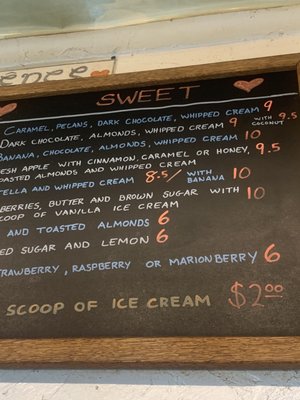 SWEET
CARAMEL, PECANS, DARK CHOCOLATE, WHIPPED CREAM 9
DARK CHOCOLATE, ALMONDS, WHIPPED CREAM 9 WITH COCONUT 9.5
BANANA, CHOCOLATE, ALMONDS, WHIPPED CREAM 10
ESH APPLE WITH CINNAMON, CARAMEL OR HONEY, 9.5
OASTED ALMONDS AND WHIPPED CREAM
TELLA AND WHIPPED CREAM 8.5/ WITH BANANA 10
BERRIES, BUTTER AND BROWN SUGAR WITH 10
COOP OF VANILLA ICE CREAM
AND TOASTED ALMONDS 6
ED SUGAR AND LEMON 6
TRAWBERRY, RASPBERRY OR MARIONBERRY 6
SCOOP OF ICE CREAM $2.00